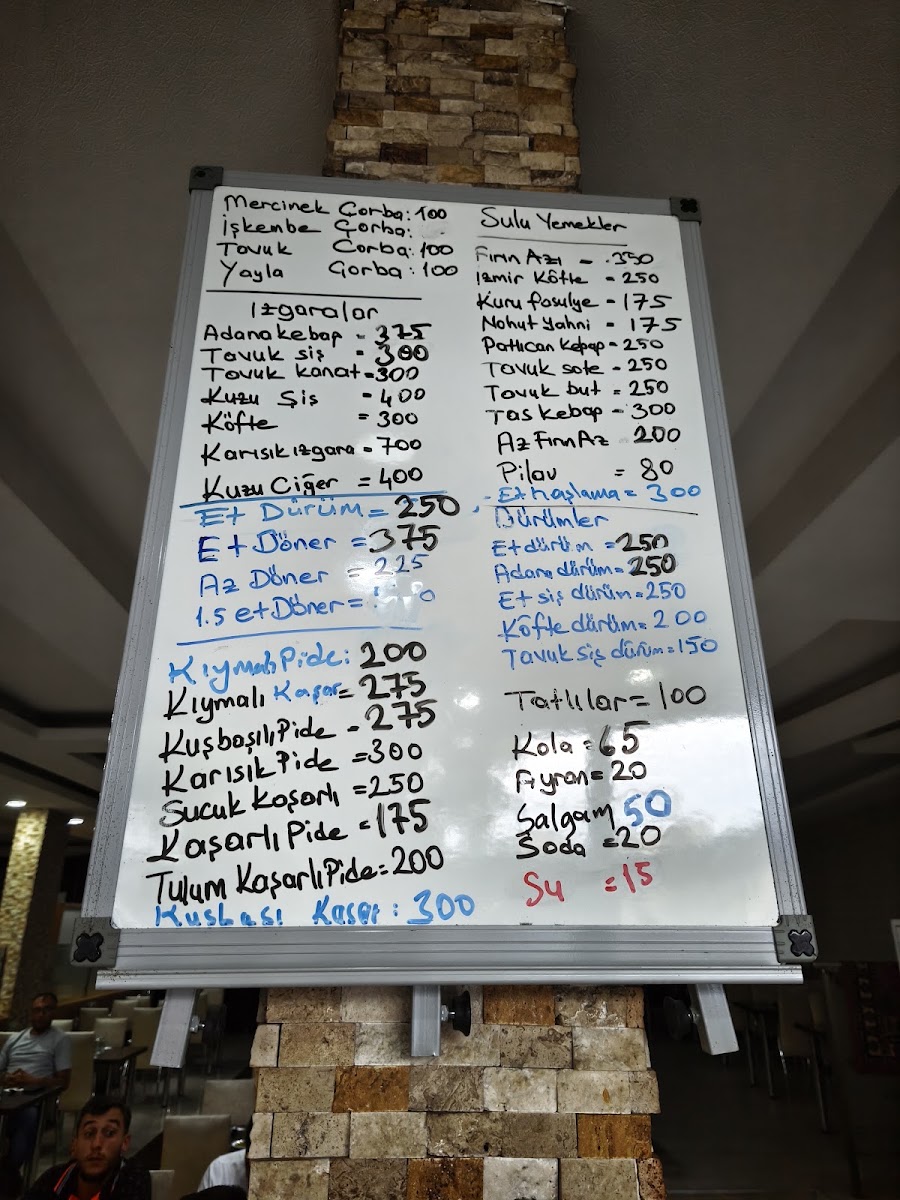 Mercinek Çorba: 100
işkembe Çorba:
Tavuk Corba: 100
Yayla Çorba: 100
Izgaralar
Adana kebap - 375
Tavuk siş - 300
Tavuk kanat - 300
Kuzu Şiş - 400
Köfte = 300
Karısık ızgara = 700
Kuzu Ciğer = 400
Et Dürüm = 250
Et Döner = 375
Az Döner = 225
1.5 et Döner =
Kıymalı Pide: 200
Kıymalı Kaşar = 275
Kuşbaşılı Pide - 275
Karısık Pide = 300
Sucuk Kaşarlı = 250
Kaşarlı Pide = 175
Tulum Kaşarlı Pide = 200
Kuşbası Kaşar: 300
Sulu Yemekler
Fırın Azı - 350
Izmir Köfte - 250
Kuru fasulye - 175
Nohut Yahni - 175
Patlıcan Kebap - 250
Tavuk sote - 250
Tavuk but = 250
Tas kebap - 300
Az Fırın Az 200
Pilav = 80
- Et haşlama = 300
Dürümler
Et dürüm = 250
Adana dürüm = 250
Et siş dürüm = 250
Köfte dürüm = 200
Tavuk siş dürüm = 150
Tatlılar = 100
Kola = 65
Ayran = 20
Şalgam 50
Soda = 20
Su = 15